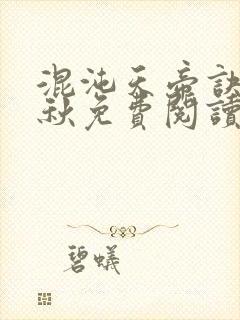 混沌天帝訣
秋免費閱讀
碧蟻